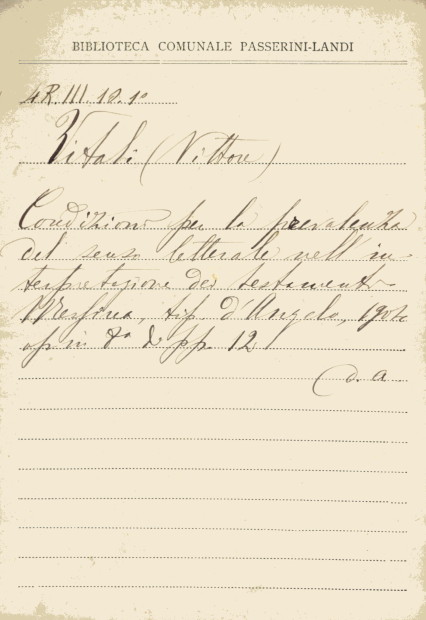 BIBLIOTECA COMUNALE PASSERINI-LANDI
4R.III.19.10
Vitali (Vittore)
Condizioni per la prevalenza
del senso letterale nell'in-
terpretazione dei testamenti
Messina, tip. d'Angelo, 1904
op. in 8° di pp. 12
(d. a